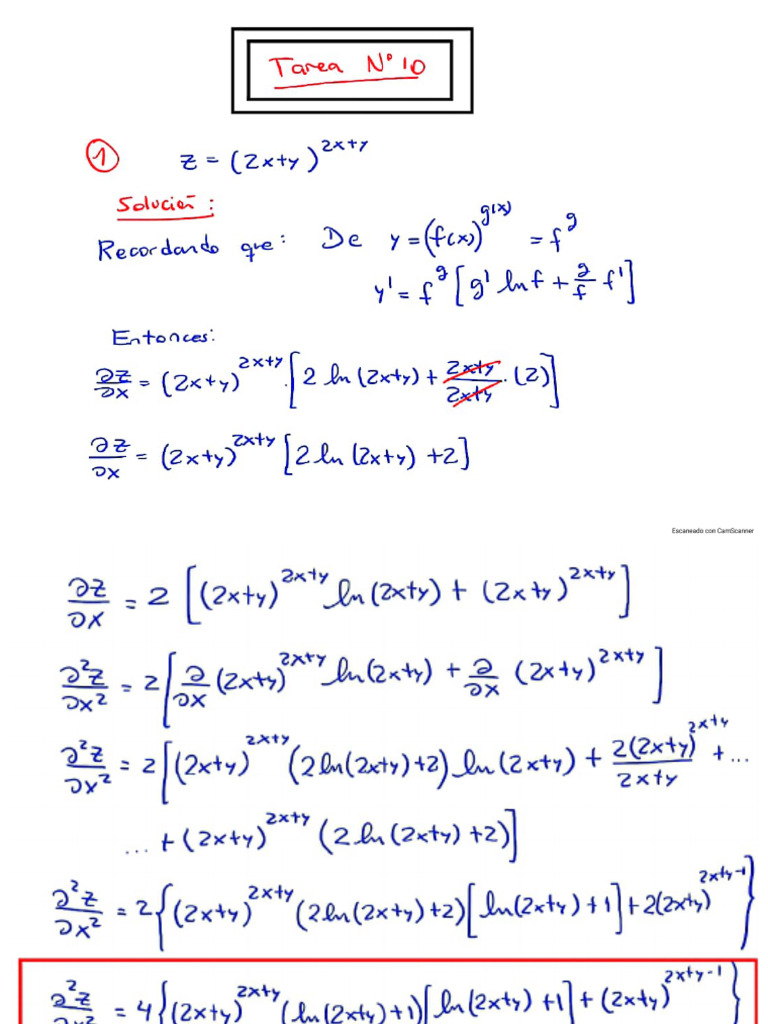 Tarea N° 10
① z = (2x+y)^{2x+y}
Solución:
Recordando que: De y = (f(x))^{g(x)} = f^g
y' = f^g [g' ln f + \frac{g}{f} f']
Entonces:
\frac{∂z}{∂x} = (2x+y)^{2x+y} · [2 ln (2x+y) + \frac{2x+y}{2x+y} · (2)]
\frac{∂z}{∂x} = (2x+y)^{2x+y} [2 ln (2x+y) + 2]
Escaneado con CamScanner
\frac{∂z}{∂x} = 2 [(2x+y)^{2x+y} ln (2x+y) + (2x+y)^{2x+y}]
\frac{∂²z}{∂x²} = 2 [\frac{∂}{∂x} (2x+y)^{2x+y} ln (2x+y) + \frac{∂}{∂x} (2x+y)^{2x+y}]
\frac{∂²z}{∂x²} = 2 [(2x+y)^{2x+y} (2 ln (2x+y) + 2) ln (2x+y) + \frac{2(2x+y)^{2x+y}}{2x+y} + ...
... + (2x+y)^{2x+y} (2 ln (2x+y) + 2)]
\frac{∂²z}{∂x²} = 2 {(2x+y)^{2x+y} (2 ln (2x+y) + 2) [ln (2x+y) + 1] + 2(2x+y)^{2x+y-1}}
\frac{∂²z}{∂x²} = 4 {(2x+y)^{2x+y} (ln (2x+y) + 1) [ln (2x+y) + 1] + (2x+y)^{2x+y-1}}